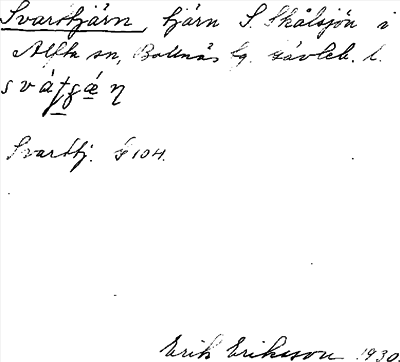 Svarttjärn, tjärn S. Skålsjön i
Alfta sn, Bollnäs tg. Gävleb. l.
Svarttj. F 104.
Erik Eriksson 1930.